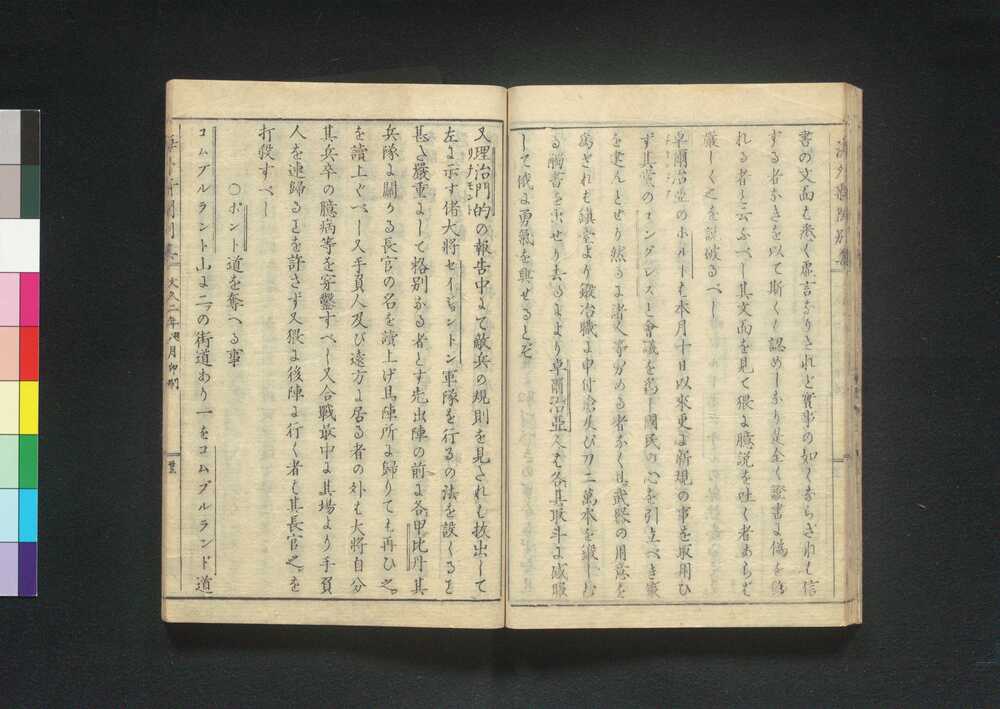 書の文面も悉く虚言なりされど實事の如くならざれは信
する者なきを以て斯くも認めしなり是全く證書に偽を
れる者と云ふべし其文面を見て猥に臆説を吐く者あらば
嚴しく之を説破るべし
卓爾治亜のホルーも本月十日以來更に新規の事を取用ひ
ず其黨のコングレスと會議を蕩し國民の心を引立べき策
を建んとせり然るに諸人等労める者なく且武器の用意を
為されは鎮臺より鍛冶職に申付鎗及び刀二萬本を鍛しむ
る觸書を出せり去るにより卓爾治亜人も各其取斗に感服
して俄に勇氣を興せるとぞ
又理治門的の報告中にて敵兵の規則を見されは抜出して
リチモント
左に示す偖大將セイジョントン軍隊を行るの法を設くるこ
甚た嚴重にして格別なる者とす先出陣の前に各甲比丹其
兵隊に關りる長官の名を讀上げ且陣所に歸りても再ひ之
を讀上ぐべし又手負人及び遠方に居る者の外も大將自分
其兵卒の臆病等を穿鑿すべし又合戰最中に其場より手負
人を連歸るを許さず又猥に後陣に行く者も其長官之を
打殺すべし
○ポント道を奪へる事
コムブルラント山に二つの街道あり一をコムブルランド道